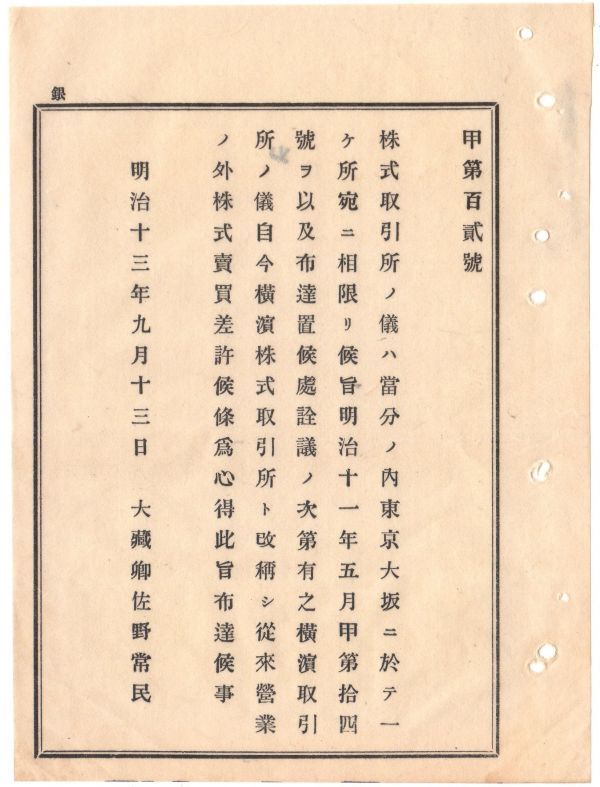 銀
甲第百貳號
株式取引所ノ儀ハ當分ノ內東京大坂ニ於テ一
ケ所宛ニ相限リ候旨明治十一年五月甲第拾四
號ヲ以及布達置候處詮議ノ次第有之橫濵取引
所ノ儀自今橫濵株式取引所ト改稱シ從來營業
ノ外株式賣買差許候條爲心得此旨布達候事
明治十三年九月十三日　大藏卿佐野常民